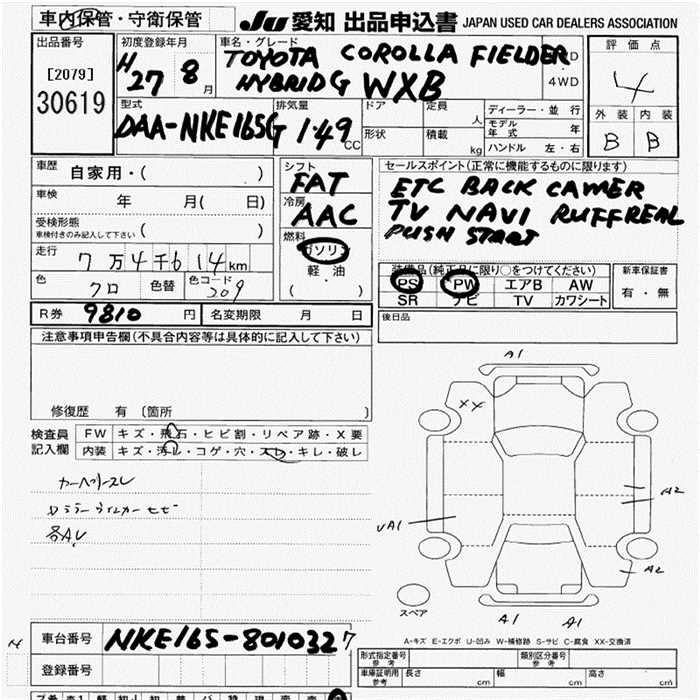 車内保管・守衛保管 JU 愛知 出品申込書 JAPAN USED CAR DEALERS ASSOCIATION
出品番号
[2079]
30619
初度登録年月
H 27 8 月
車名・グレード
TOYOTA COROLLA FIELDER
HYBRID G WXB
4WD
評価点
4
外装 内装
B B
型式
DAA-NKE165G
排気量
1.49 CC
ドア
形状
定員 人
積載 kg
ディーラー・並行
モデル年式 年
ハンドル 左・右
車歴 自家用・( )
車検 年 月( 日)
受検形態
車検付きのみ記入して下さい ( )
走行 7万4千614km
色 クロ 色替 色コード 209
シフト
FAT
冷房
AAC
燃料
ガソリン
軽油
( ・ )
セールスポイント(正常に機能するものに限ります)
ETC BACK CAMER
TV NAVI RUFFREAL
PUSH START
装備品(純正品に限り○をつけてください)
PS PW エアB AW
SR ナビ TV カワシート
新車保証書
有・無
R券 9810 円 名変期限 月 日
後日品
注意事項申告欄(不具合内容等は具体的に記入して下さい)
修復歴 有 〔箇所 〕
検査員記入欄
FW キズ・飛石・ヒビ割・リペア跡・X要
内装 キズ・汚レ・コゲ・穴・スレ・キレ・破レ
各AU
A1
XX
A2
UA1
A2
スペア
A1 A1
A-キズ E-エクボ U-凹み W-補修跡 S-サビ C-腐食 XX-交換済
車台番号 NKE165-8010327
登録番号
形式指定番号 参考
類別区分番号 参考
車庫証明用 参考 長さ cm 幅 cm 高さ cm